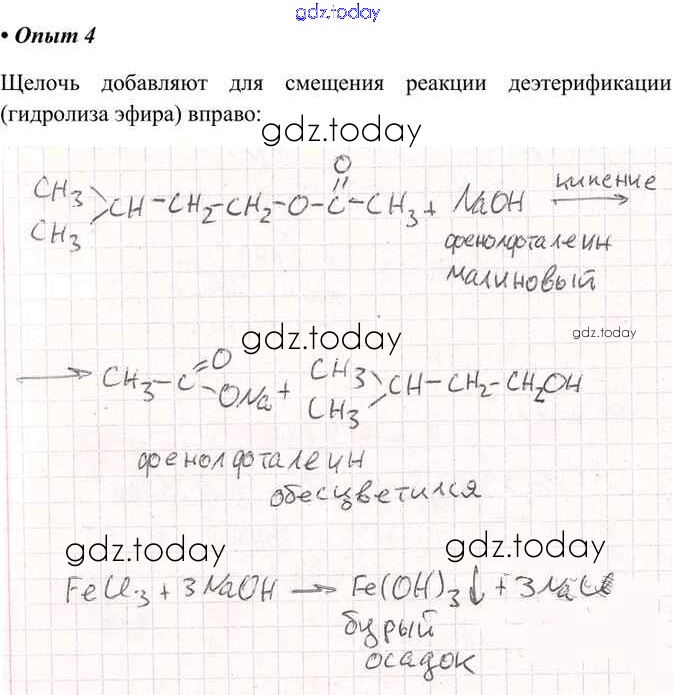 gdz.today
• Опыт 4
Щелочь добавляют для смещения реакции деэтерификации
(гидролиза эфира) вправо:
gdz.today
O
CH3
CH3 CH–CH2–CH2–O–C–CH3 + NaOH кипение
фенолфталеин
малиновый
gdz.today
gdz.today
CH3–C O ONa + CH3 CH3 CH–CH2–CH2OH
фенолфталеин
обесцветился
gdz.today
gdz.today
FeCl3 + 3NaOH → Fe(OH)3↓ + 3NaCl
бурый
осадок